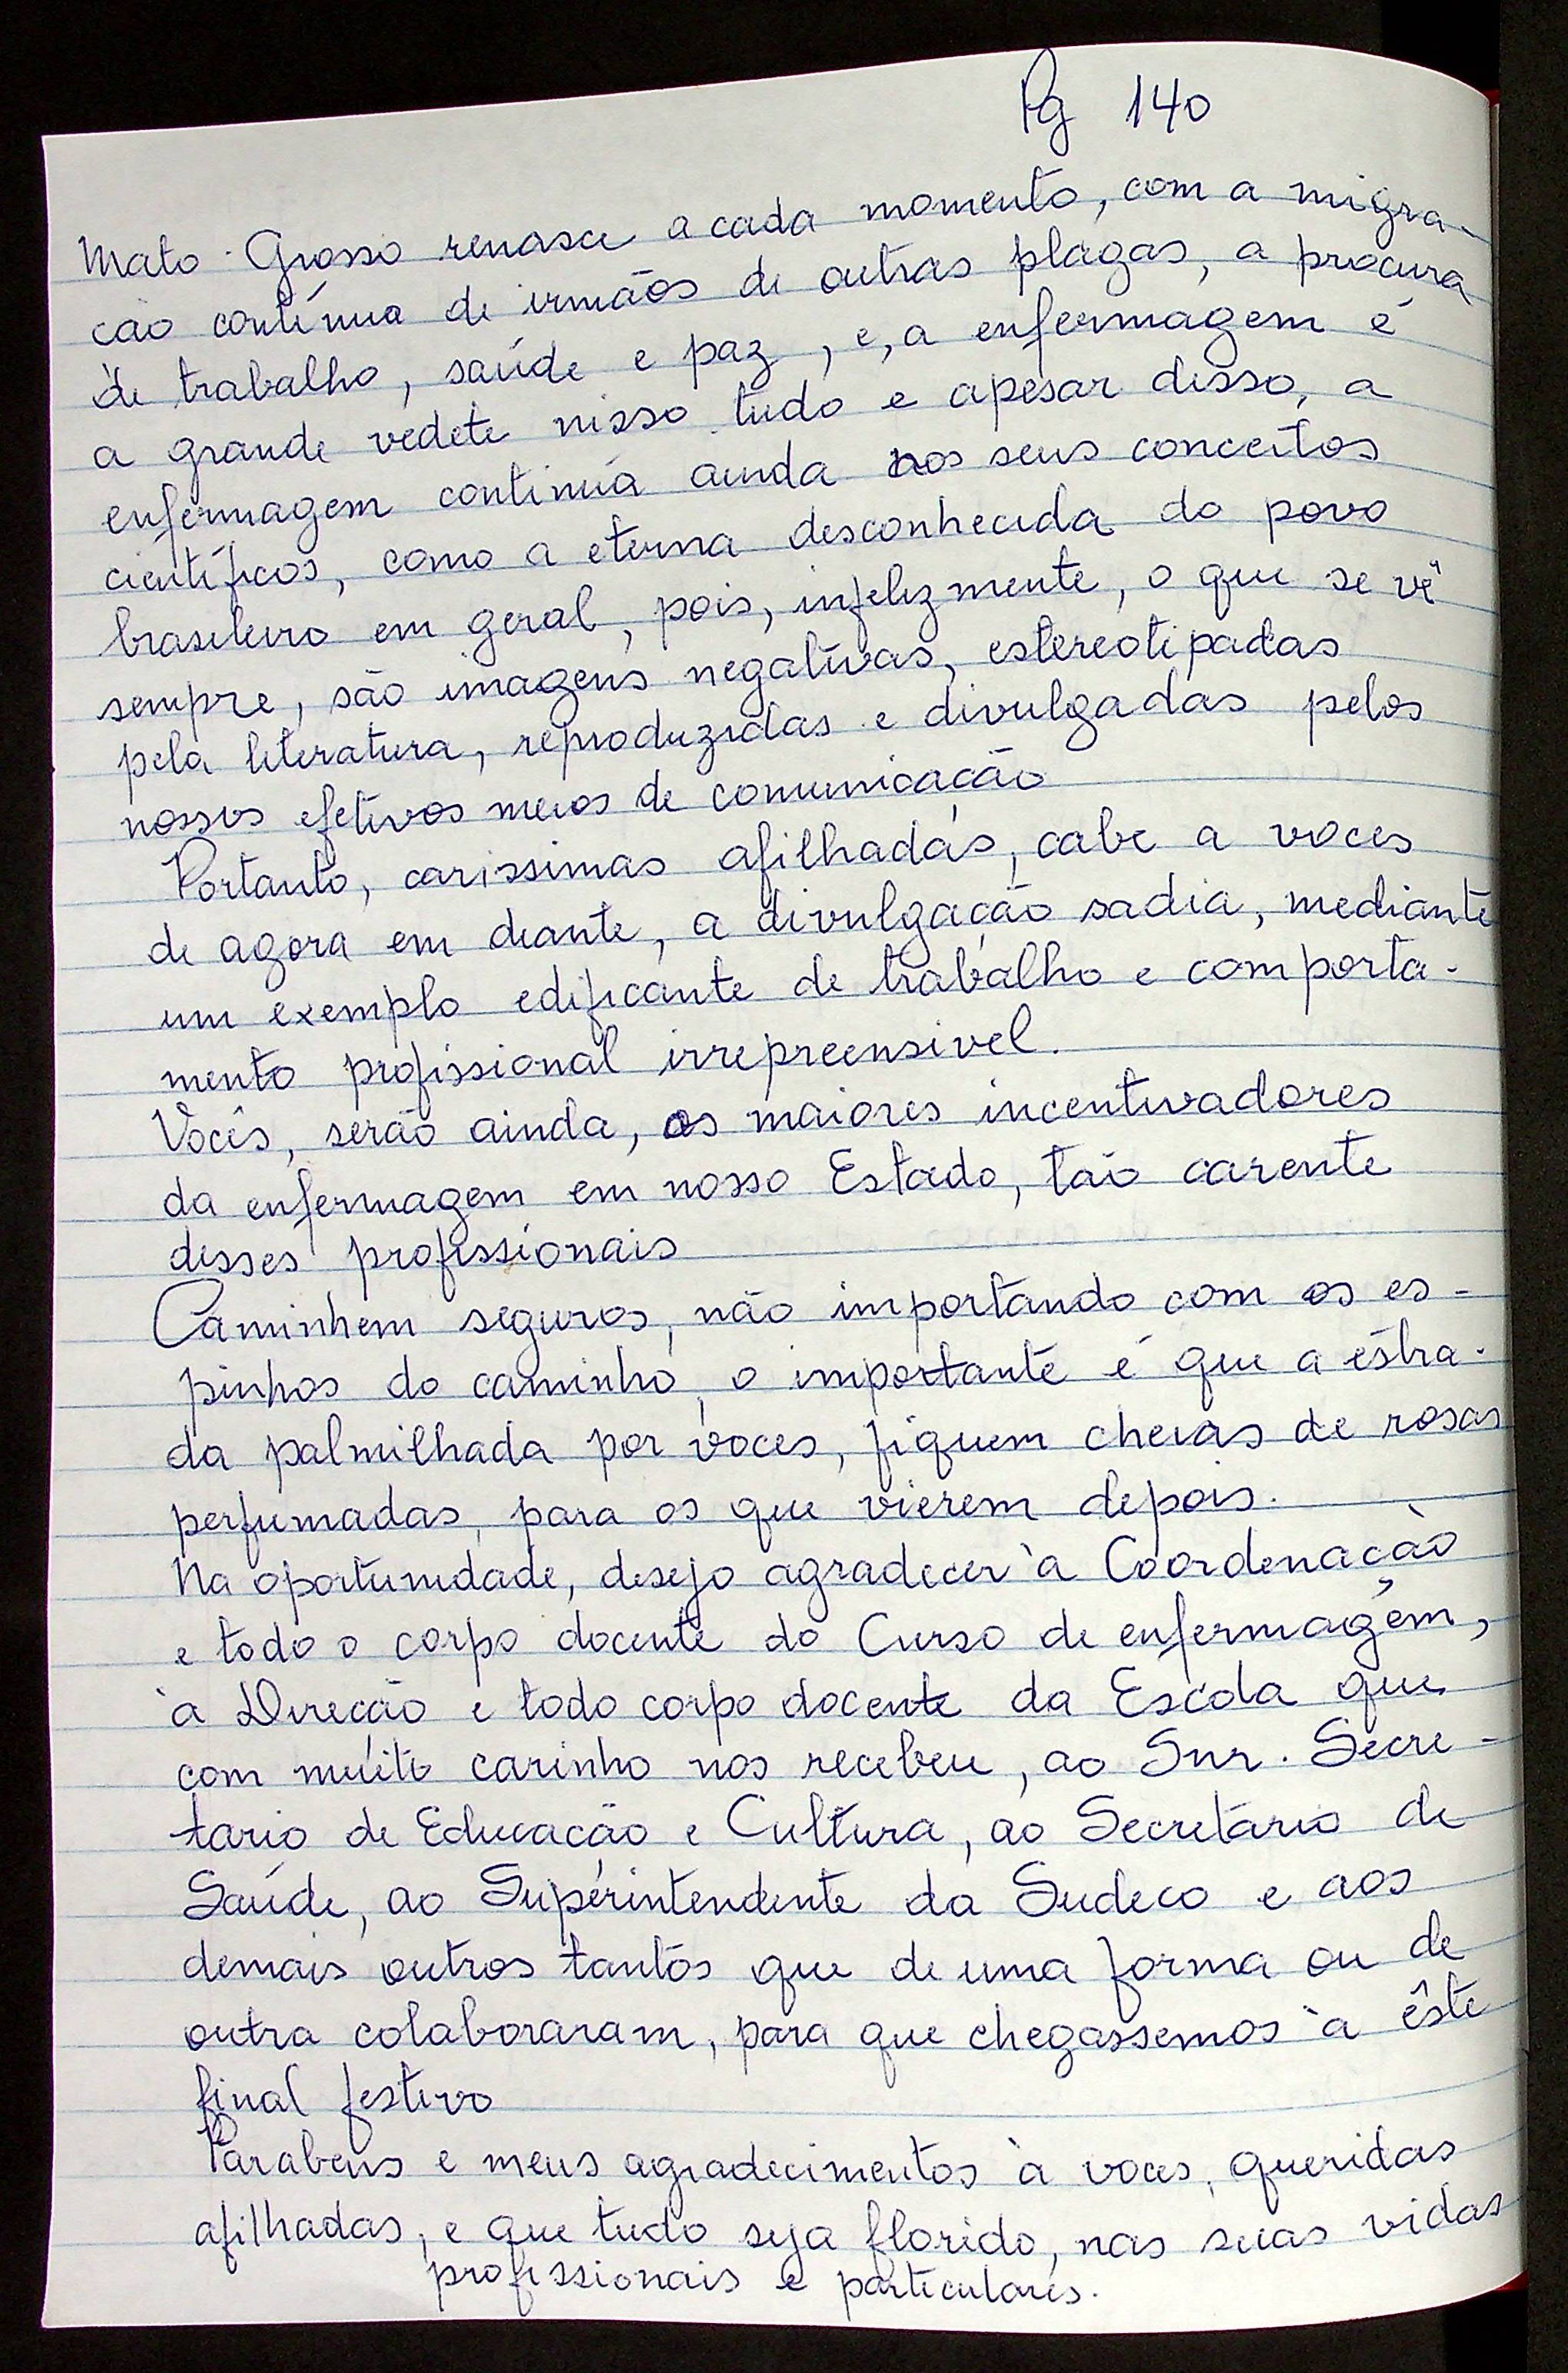 Pg 140
Mato Grosso renasce a cada momento, com a migra-
ção contínua de irmãos de outras plagas, a procura
de trabalho, saúde e paz, e, a enfermagem é
a grande vedete nisso tudo e apesar disso, a
enfermagem continua ainda nos seus conceitos
científicos, como a eterna desconhecida do povo
brasileiro em geral, pois, infelizmente, o que se vê
sempre, são imagens negativas, estereotipadas
pela literatura, reproduzidas e divulgadas pelos
nossos efetivos meios de comunicação
Portanto, carissimas afilhadas, cabe a voces
de agora em diante, a divulgação sadia, mediante
um exemplo edificante de trabalho e comporta-
mento profissional irrepreensivel.
Vocês, serão ainda, os maiores incentivadores
da enfermagem em nosso Estado, tão carente
desses profissionais
Caminhem seguros, não importando com os es-
pinhos do caminho, o importante é que a estra-
da palmilhada por voces, fiquem cheias de rosas
perfumadas, para os que vierem depois.
Na oportunidade, desejo agradecer à Coordenação
e todo o corpo docente do Curso de enfermagem,
à Direção e todo corpo docente da Escola que
com muito carinho nos recebeu, ao Snr. Secre-
tario de Educação e Cultura, ao Secretário de
Saúde, ao Superintendente da Sudeco e aos
demais outros tantos que de uma forma ou de
outra colaboraram, para que chegassemos à êste
final festivo
Parabens e meus agradecimentos à voces, queridas
afilhadas, e que tudo seja florido, nas suas vidas
profissionais e particulares.